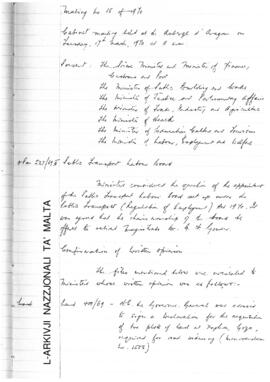 Meeting No 15 of 1970
Cabinet meeting held at the Auberge d'Aragon on
Tuesday, 17th March, 1970 at 9 a.m.
Present: The Prime Minister and Minister of Finance,
Customs and Port
The Minister of Public Building and Works
The Minister of Justice and Parliamentary Affairs
The Minister of Trade, Industry and Agriculture
The Minister of Health
The Minister of Education Culture and Tourism
The Minister of Labour, Employment and Welfare
Public Transport Labour Board
Ministers considered the question of the appointment
of the Public Transport Labour Board set up under the
Public Transport (Regulation of Employment) Act 1970. It
was agreed that the chairmanship of the Board be
offered to retired Magistrate
Confirmation of written opinion
The files mentioned below were circulated to
Ministers whose written opinion was as follows:-
Lands
Land 400/69 - H.E. the Governor General was advised
to sign a declaration for the acquisition
of two plots of land at Xaghra, Gozo,
required for road widening (Memorandum
No.
L-ARKIVJI NAZZJONALI TA' MALTA